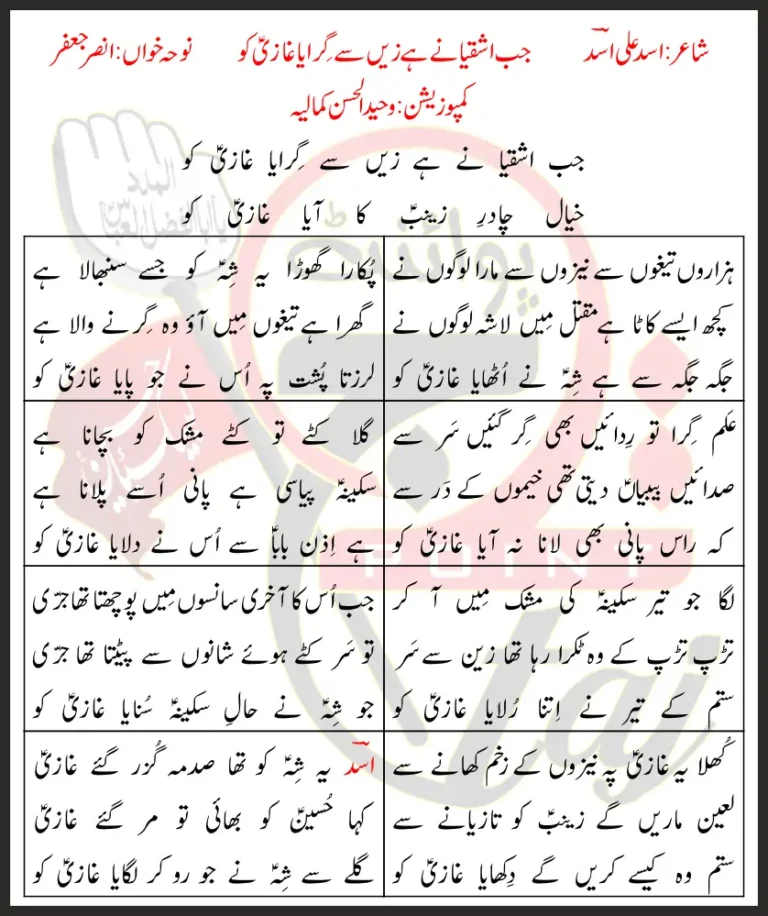 شاعر: اسد علی اسدؔ جب اشقیا نے ہے زیں سے گِرایا غازیؑ کو نوحہ خواں: انصر جعفر
کمپوزیشن: وحید الحسن کمالیہ
جب اشقیا نے ہے زیں سے گِرایا غازیؑ کو
خیال چادرِ زینبؑ کا آیا غازیؑ کو
ہزاروں تیغوں سے نیزوں سے مارا لوگوں نے
کچھ ایسے کاٹا ہے مقتل مِیں لاشہ لوگوں نے
جگہ جگہ سے ہے شِہؑ نے اُٹھایا غازیؑ کو
پُکارا گھوڑا یہ شِہؑ کو جسے سنبھالا ہے
گھرا ہے تیغوں مِیں آؤ وہ گِرنے والا ہے
لرزتا پُشت پہ اُس نے جو پایا غازیؑ کو
علم گِرا تو رِدائیں بھی گِر گئیں سَر سے
صدائیں بیبیاںؑ دیتی تھی خیموں کے دَر سے
کہ راس پانی بھی لانا نہ آیا غازیؑ کو
گلا کٹے تو کٹے مشک کو بچانا ہے
سکینہؑ پیاسی ہے پانی اُسے پلانا ہے
ہے اِذن باباؑ سے اُس نے دلایا غازیؑ کو
لگا جو تیر سکینہؑ کی مشک مِیں آ کر
تڑپ تڑپ کے وہ ٹکرا رہا تھا زین سے سَر
ستم کے تیر نے اِتنا رُلایا غازیؑ کو
جب اُس کا آخری سانسوں مِیں پوچھتا تھا جرّی
تو سَر کٹے ہوئے شانوں سے پیٹتا تھا جرّی
جو شِہؑ نے حالِ سکینہؑ سُنایا غازیؑ کو
کُھلا یہ غازیؑ پہ نیزوں کے زخم کھانے سے
لعین ماریں گے زینبؑ کو تازیانے سے
ستم وہ کیسے کریں گے دِکھایا غازیؑ کو
اسدؔ یہ شِہؑ کو تھا صدمہ گُزر گئے غازیؑ
کہا حُسینؑ کو بھائی تو مر گئے غازیؑ
گلے سے شِہؑ نے جو رو کر لگایا غازیؑ کو
پوائنٹ
POINT